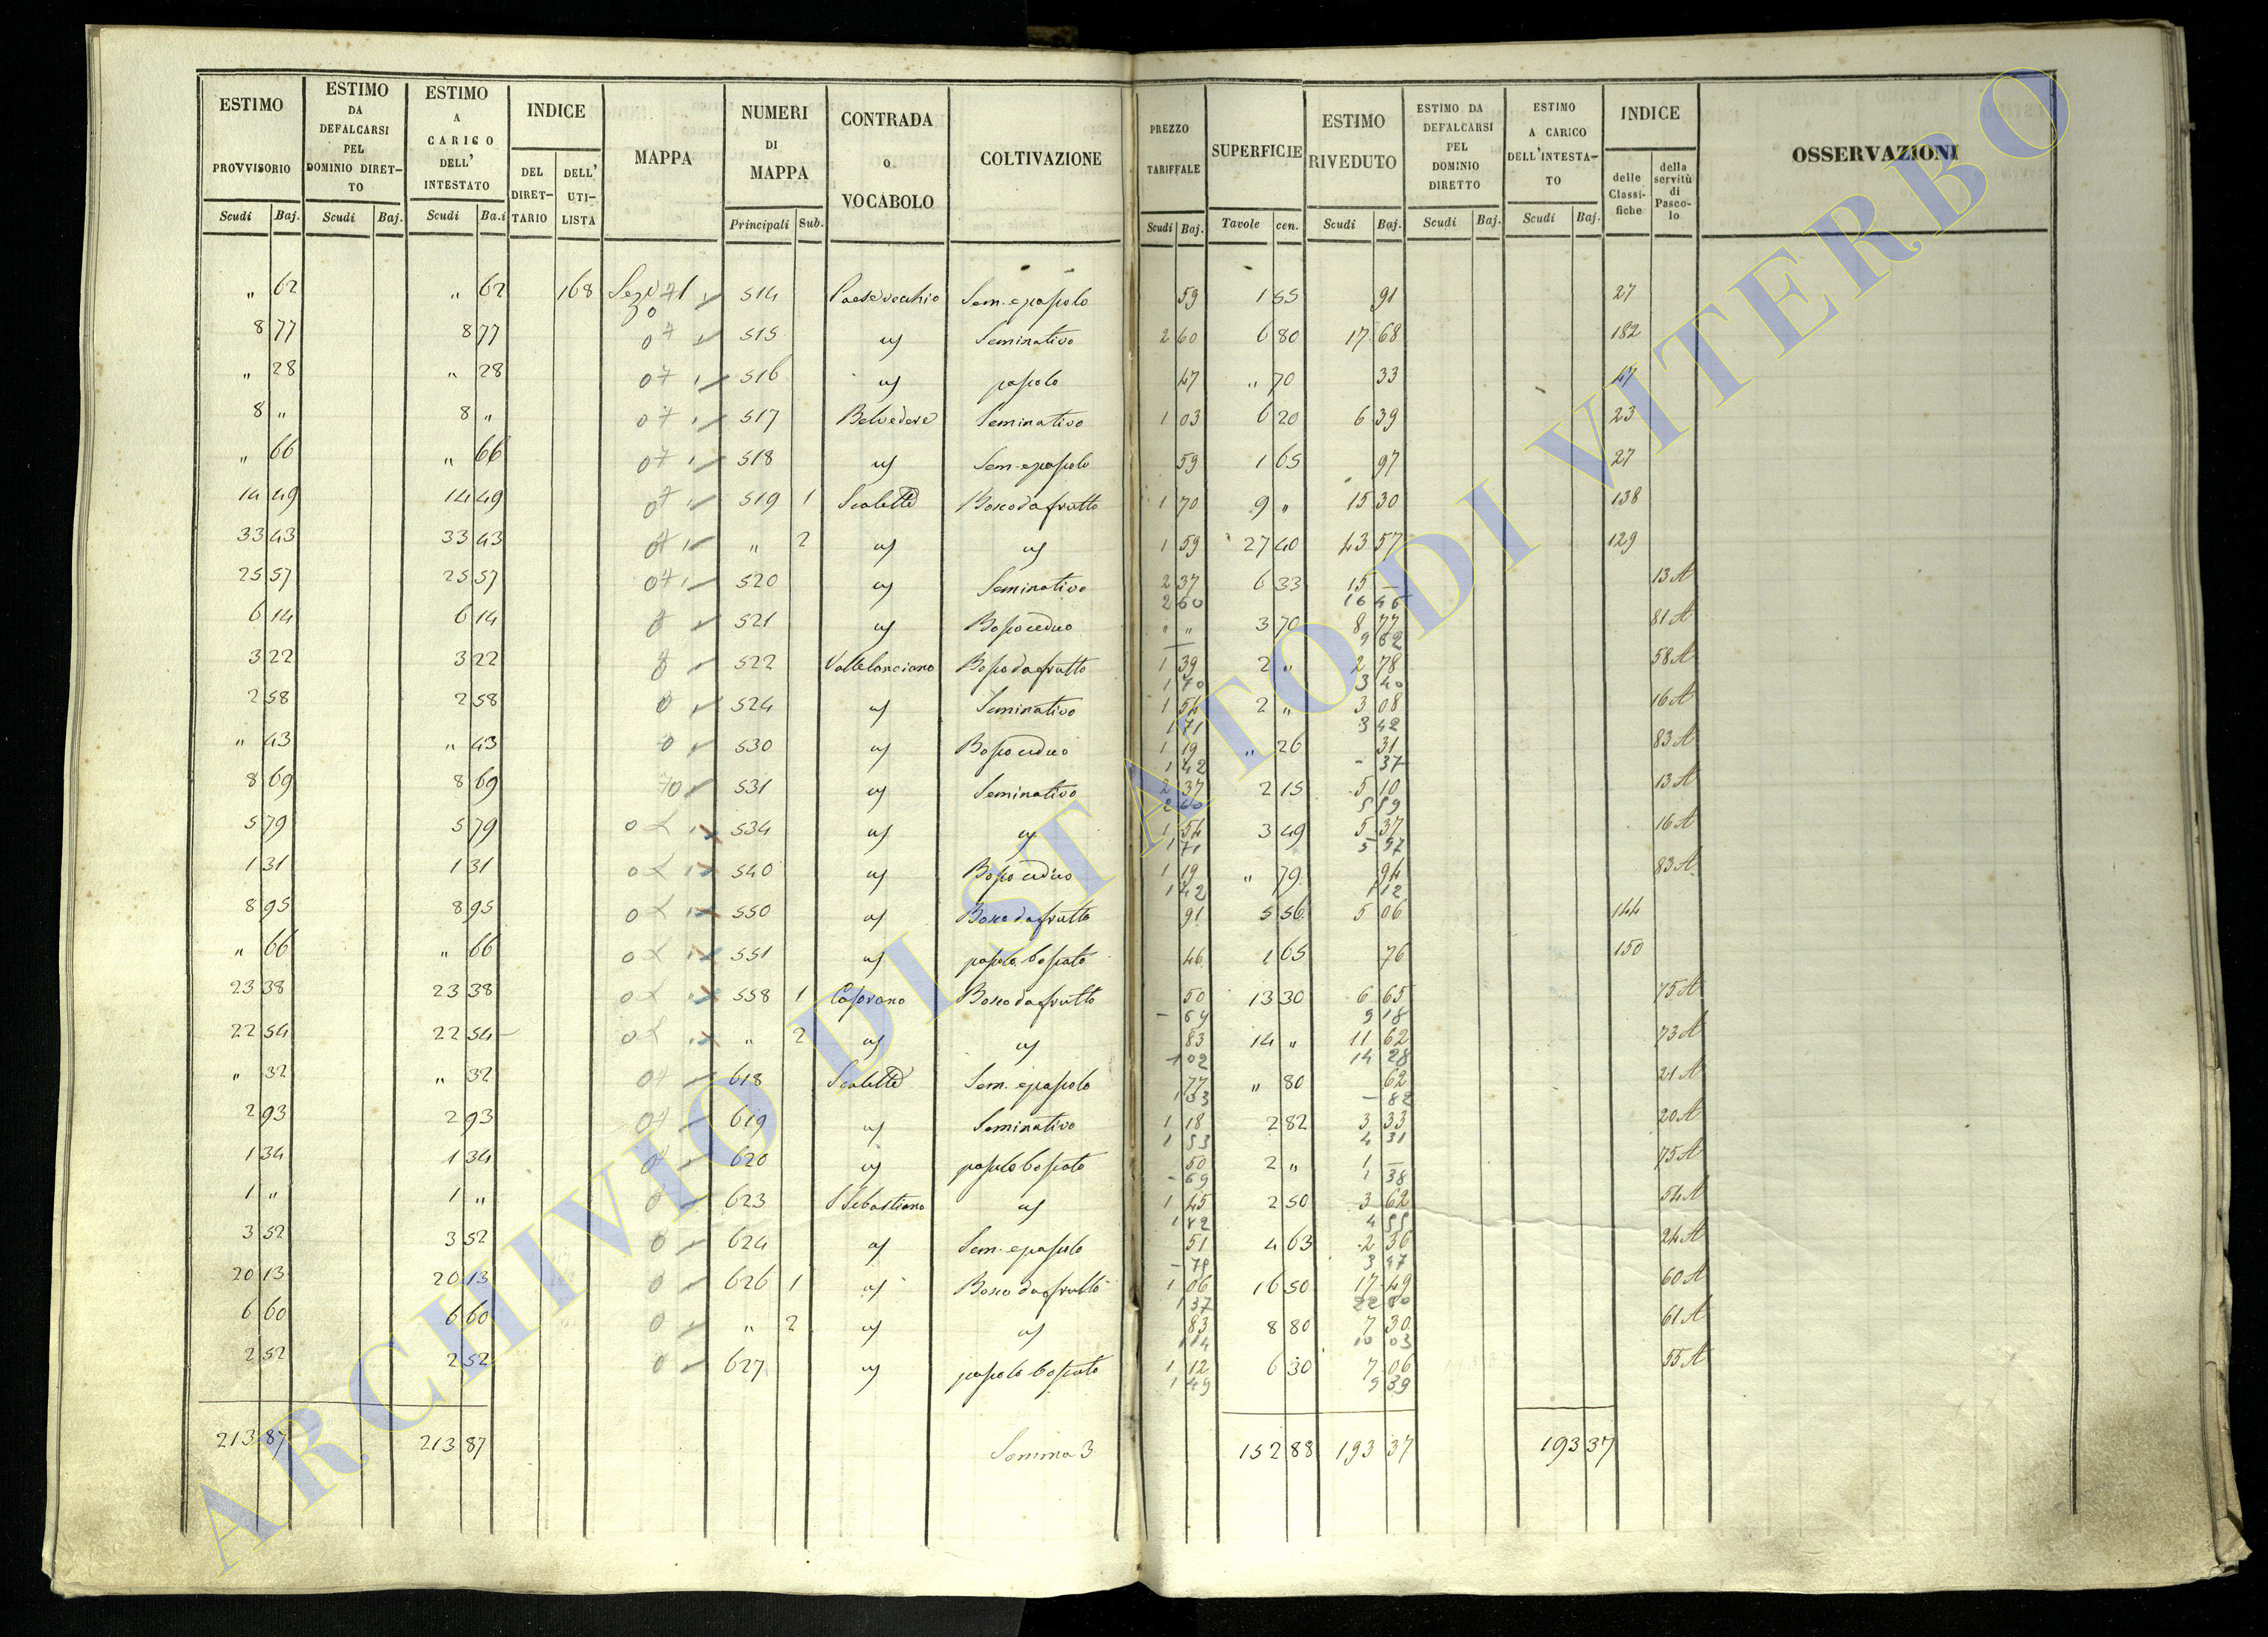 ESTIMO PROVVISORIO Scudi Baj. | ESTIMO DA DEFALCARSI PEL DOMINIO DIRET-TO Scudi Baj. | ESTIMO A CARICO DELL' INTESTATO Scudi Ba.i | INDICE DEL DIRET-TARIO DELL' UTI-LISTA | MAPPA | NUMERI DI MAPPA Principali Sub. | CONTRADA o VOCABOLO | COLTIVAZIONE | PREZZO TARIFFALE Scudi Baj. | SUPERFICIE Tavole cen. | ESTIMO RIVEDUTO Scudi Baj. | ESTIMO DA DEFALCARSI PEL DOMINIO DIRETTO Scudi Baj. | ESTIMO A CARICO DELL'INTESTA-TO Scudi Baj. | INDICE delle Classi-fiche della servitù di Pasco-lo | OSSERVAZIONI
" 62 " 62 168 514 Paesevecchio Sem. e pascolo 59 1 55 91 27
8 77 8 77 515 " Seminativo 2 60 6 80 17 68 182
" 28 " 28 516 " pascolo 47 " 70 33 47
8 " 8 " 517 Belvedere Seminativo 1 03 6 20 6 39 23
" 66 " 66 518 " Sem. e pascolo 59 1 65 97 27
14 49 14 49 519 1 Scalette Bosco da frutto 1 70 9 " 15 30 138
33 43 33 43 " 2 " " 1 59 27 40 43 57 129
25 57 25 57 520 " Seminativo 2 37 6 33 15 — 13 A
2 60 16 46
6 14 6 14 521 " Bosco ceduo " " 3 70 8 77 81 A
9 62
3 22 3 22 522 Vallelanciano Bosco da frutto 1 39 2 " 2 78 58 A
1 70 3 40
2 58 2 58 524 " Seminativo 1 54 2 " 3 08 16 A
1 71 3 42
" 43 " 43 530 " Bosco ceduo 1 19 " 26 31 83 A
1 42 - 37
8 69 8 69 531 " Seminativo 2 37 2 15 5 10 13 A
2 60 5 59
5 79 5 79 534 " " 1 54 3 49 5 37 16 A
1 71 5 97
1 31 1 31 540 " Bosco ceduo 1 19 " 79 94 83 A
1 42 1 12
8 95 8 95 550 " Bosco da frutto 91 5 56 5 06 144
" 66 " 66 551 " pascolo boscato 46 1 65 76 150
23 38 23 38 558 1 Bosco da frutto 50 13 30 6 65 75 A
- 69 9 18
22 54 22 54 " 2 " " 83 14 " 11 62 73 A
1 02 14 28
" 32 " 32 618 Scalette Sem. e pascolo 77 " 80 62 21 A
1 03 - 82
2 93 2 93 619 " Seminativo 1 18 2 82 3 33 20 A
1 53 4 31
1 34 1 34 620 " pascolo boscato 50 2 " 1 — 75 A
- 69 1 38
1 " 1 " 623 S Sebastiano " 1 45 2 50 3 62 54 A
1 82 4 55
3 52 3 52 624 " Sem. e pascolo 51 4 63 2 36 24 A
20 13 20 13 626 1 " Bosco da frutto 1 06 16 50 17 49 60 A
1 37
6 60 6 60 " 2 " " 83 8 80 7 30 61 A
1 14 10 03
2 52 2 52 627 " pascolo boscato 1 12 6 30 7 06 55 A
1 49 9 39
213 87 213 87 Somma 3 152 88 193 37 193 37
ARCHIVIO DI STATO DI VITERBO